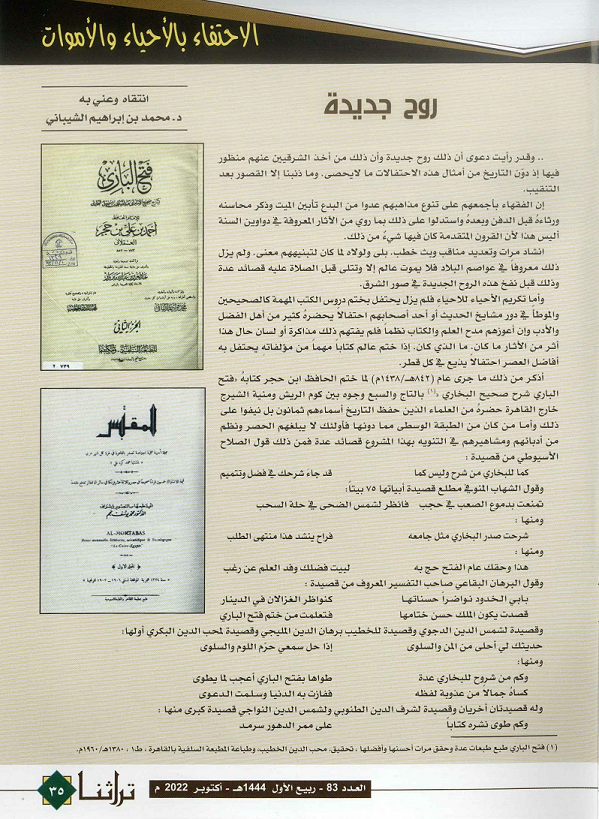 الاحتفاء بالأحياء والأموات
روح جديدة
انتقاه وعني به
د. محمد بن إبراهيم الشيباني
.. وقدر رأيت دعوى أن ذلك روح جديدة وأن ذلك من أخذ الشرقيين عنهم منظور
فيها إذ دوّن التاريخ من أمثال هذه الاحتفالات ما لايحصى. وما ذنبنا إلا القصور بعد
التنقيب.
إن الفقهاء بأجمعهم على تنوع مذاهبهم عدوا من البدع تأبين الميت وذكر محاسنه
ورثاءهُ قبل الدفن وبعدهُ واستدلوا على ذلك بما روي من الأثار المعروفة في دواوين السنة
أليس هذا لأن القرون المتقدمة كان فيها شيءٌ من ذلك.
انشاد مرات وتعديد مناقب وبث خطب. بلى ولولاه لما كان لتبنيههم معنى. ولم يزل
ذلك معروفاً في عواصم البلاد فلا يموت عالم إلا وتتلى قبل الصلاة عليه قصائد عدة
وذلك قبل نفخ هذه الروح الجديدة في صور الشرق.
وأما تكريم الأحياء للاحياء فلم يزل يحتفل بختم دروس الكتب المهمة كالصحيحين
والموطأ في دور مشايخ الحديث أو أحد أصحابهم احتفالاً يحضرهُ كثير من أهل الفضل
والأدب وإن أعوزهم مدح العلم والكتاب نظماً فلم يفتهم ذلك مذاكرة أو لسان حال هذا
أثر من الأثار ما كان. ما الذي كان. إذا ختم عالم كتاباً مهماً من مؤلفاته يحتفل به
أفاضل العصر احتفالا يذيع في كل قطر.
أذكر من ذلك ما جرى عام (٨٤٢هـ/١٤٣٨م) لما ختم الحافظ ابن حجر كتابهُ «فتح
الباري شرح صحيح البخاري»(١) بالتاج والسبع وجوه بين كوم الريش ومنية الشيرج
خارج القاهرة حضرهُ من العلماء الذين حفظ التاريخ أسماءهم ثمانون بل نيفوا على
ذلك وأما من كان من الطبقة الوسطى مما دونها فأولئك لا يبلغهم الحصر ونظم
من أدبائهم ومشاهيرهم في التنويه بهذا المشروع قصائد عدة فمن ذلك قول الصلاح
الأسيوطي من قصيدة :
كما للبخاري من شرح وليس كما
قد جاءَ شرحك في فضل وتتميم
وقول الشهاب المنوفي مطلع قصيدة أبياتها ٧٥ بيتاً:
تمنعت بدموع الصعب في حجب
فانظر لشمس الضحى في حلة السحب
ومنها :
شرحت صدر البخاري مثل جامعه
فراح ينشد هذا منتهى الطلب
ومنها :
هذا وحقك عام الفتح حج به
لبيت فضلك وفد العلم عن رغب
وقول البرهان البقاعي صاحب التفسير المعروف من قصيدة :
بأبي الخدود نواضرا حسناتها
كنواظر الغزالان في الدينار
قصدت يكون الملك حسن ختامها
فتعلمت من ختم فتح الباري
وقصيدة لشمس الدين الدجوي وقصيدة للخطيب برهان الدين المليجي وقصيدة لمحب الدين البكري أولها:
حديثك لي أحلى من المن والسلوى
إذا حل سمعي حرّم اللوم والسلوى
ومنها:
وكم من شروح للبخاري عدة
طواها بفتح الباري أعجب لما يطوى
كساهُ جمالا من عذوبة لفظه
ففازت به الدنيا وسلمت الدعوى
وله قصيدتان أخريان وقصيدة لشرف الدين الطنوبي ولشمس الدين النواجي قصيدة كبرى منها :
وكم طوى نشره كتابا
على ممر الدهور سرمد
(١) فتح الباري طبع طبعات عدة وحقق مرات أحسنها وأفضلها ، تحقيق: محب الدين الخطيب، وطباعة المطبعة السلفية بالقاهرة ، ط١ ، ١٣٨٠هـ/١٩٦٠م.
فتح الباري
أحمد بن علي بن حجر
العسقلاني
الجزء الثاني
٢٧٣٩
المقتبس
AL-MOKTABAS
العدد 83 - ربيع الأول 1444هـ - أكتوبر 2022 م
تراثنا
٣٥